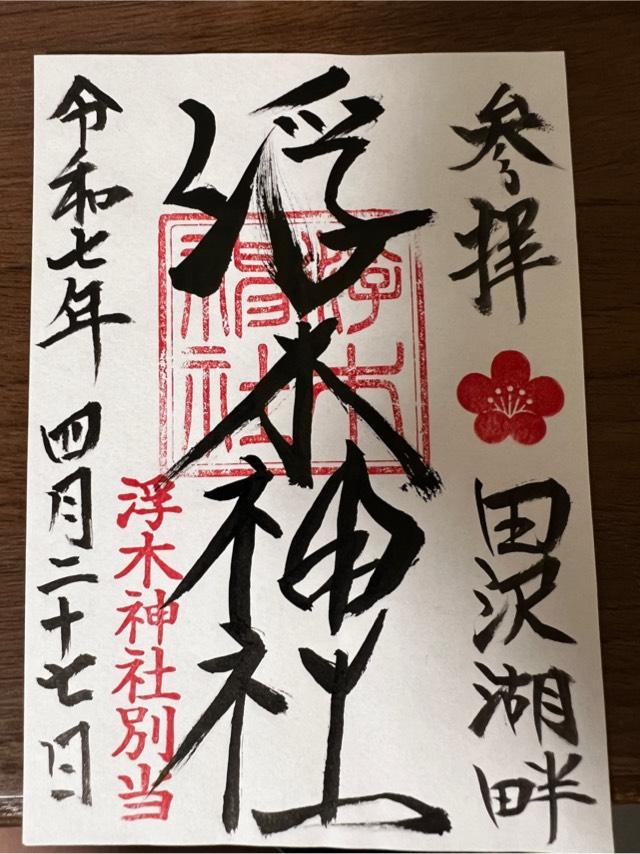 参拝
田沢湖畔
浮木神社
浮木神社別当
令和七年 四月二十七日